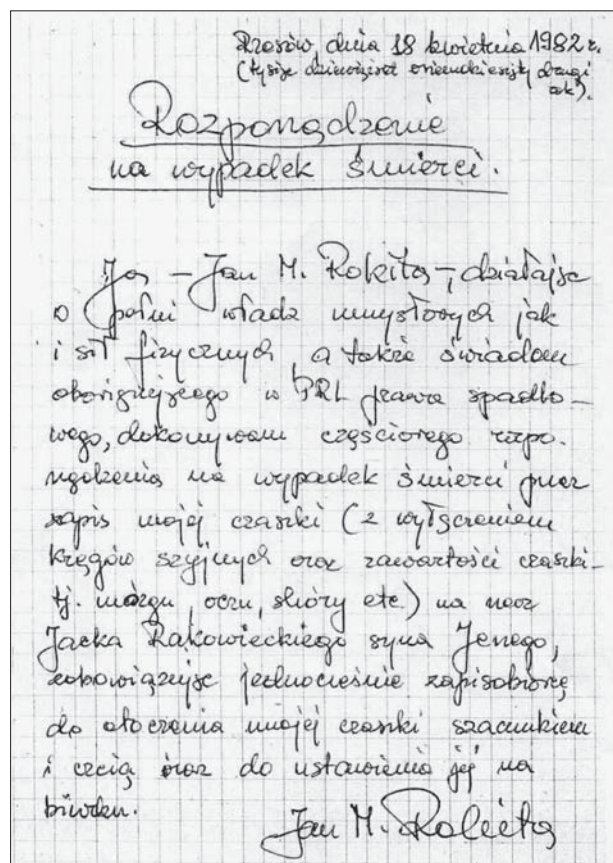 Rzeszów, dnia 18 kwietnia 1982 r.
(tysiąc dziewięćset osiemdziesiąty drugi
rok).
Rozporządzenie
na wypadek śmierci.
Ja – Jan M. Rokita –, działając
w pełni władz umysłowych jak
i sił fizycznych, a także świadom
obowiązującego w PRL prawa spadko-
wego, dokonywam częściowego rozpo-
rządzenia na wypadek śmierci przez
zapis mojej czaszki (z wyłączeniem
kręgów szyjnych oraz zawartości czaszki –
tj. mózgu, oczu, skóry etc.) na rzecz
Jacka Rakowieckiego syna Jerzego,
zobowiązując jednocześnie zapisobiorcę
do otoczenia mojej czaszki szacunkiem
i czcią oraz do ustawienia jej na
biurku.
Jan M. Rokita